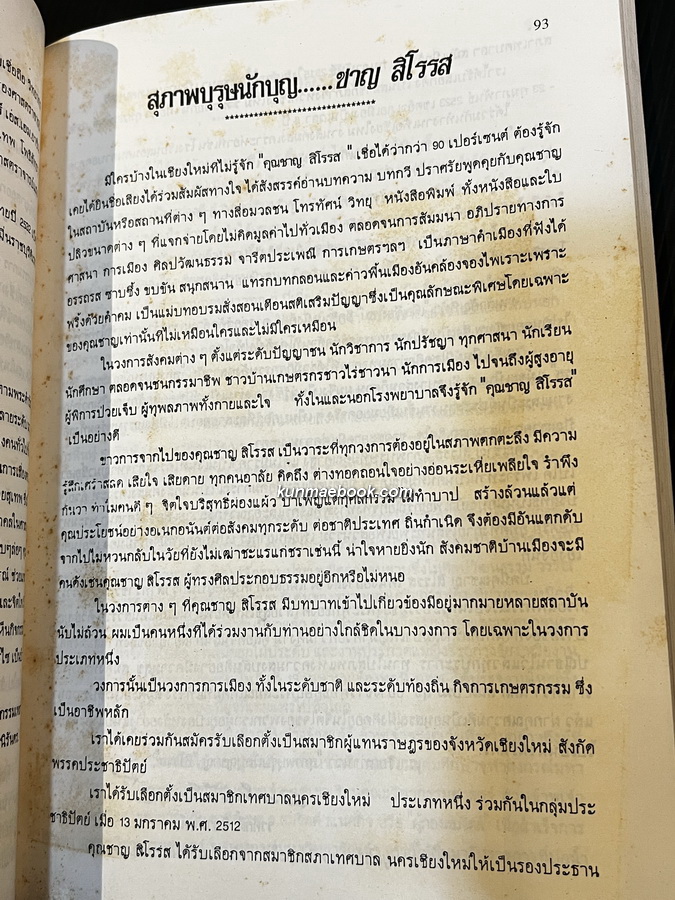 93
สุภาพบุรุษนักบุญ......ชาญ สิโรรส
มีใครบ้างในเชียงใหม่ที่ไม่รู้จัก "คุณชาญ สิโรรส " เชื่อได้ว่ากว่า 90 เปอร์เซนต์ ต้องรู้จัก
เคยได้ยินชื่อเสียงได้ร่วมสัมผัสทางใจ ได้สังสรรค์อ่านบทความ บทกวี ปราศรัยพูดคุยกับคุณชาญ
ในสถาบันหรือสถานที่ต่าง ๆ ทางสื่อมวลชน โทรทัศน์ วิทยุ หนังสือพิมพ์ ทั้งหนังสือและใบ
ปลิวขนาดต่าง ๆ ที่แจกจ่ายโดยไม่คิดมูลค่าไปทั่วเมือง ตลอดจนการสัมมนา อภิปรายทางการ
ศาสนา การเมือง ศิลปวัฒนธรรม จารีตประเพณี การเกษตรฯลฯ เป็นภาษาคำเมืองที่ฟังได้
อรรถรส ซาบซึ้ง ขบขัน สนุกสนาน แทรกบทกลอนและค่าวพื้นเมืองอันคล้องจองไพเราะเพราะ
พริ้งคีรีคำคม เป็นแม่บทอบรมสั่งสอนเตือนสติเสริมปัญญาซึ่งเป็นคุณลักษณะพิเศษโดยเฉพาะ
ของคุณชาญเท่านั้นที่ไม่เหมือนใครและไม่มีใครเหมือน
ในวงการสังคมต่าง ๆ ตั้งแต่ระดับปัญญาชน นักวิชาการ นักปรัชญา ทุกศาสนา นักเรียน
นักศึกษา ตลอดจนชนกรรมาชีพ ชาวบ้านเกษตรกรชาวไร่ชาวนา นักการเมือง ไปจนถึงผู้สูงอายุ
ผู้พิการป่วยเจ็บ ผู้ทุพลภาพทั้งกายและใจ ทั้งในและนอกโรงพยาบาลจึงรู้จัก "คุณชาญ สิโรรส"
เป็นอย่างดี
ข่าวการจากไปของคุณชาญ สิโรรส เป็นวาระที่ทุกวงการต้องอยู่ในสภาพตกตะลึง มีความ
รู้สึกเศร้าสลด เสียใจ เสียดาย ทุกคนอาลัย คิดถึง ต่างทอดถอนใจอย่างอ่อนระเหี่ยเพลียใจ รำพึง
กันว่า ทำไมคนดี ๆ จิตใจบริสุทธิ์ผ่องแผ้ว บำเพ็ญแต่กุศลกรรม ไม่ทำบาป สร้างล้วนแล้วแต่
kunmaebook.com
คุณประโยชน์อย่างอเนกอนันต์ต่อสังคมทุกระดับ ต่อชาติประเทศ ถิ่นกำเนิด จึงต้องมีอันแตกดับ
จากไปไม่หวนกลับในวัยที่ยังไม่เฒ่าชะแรแก่ชราเช่นนี้ น่าใจหายยิ่งนัก สังคมชาติบ้านเมืองจะมี
คนดังเช่นคุณชาญ สิโรรส ผู้ทรงศิลประกอบธรรมอยู่อีกหรือไม่หนอ
ในวงการต่าง ๆ ที่คุณชาญ สิโรรส มีบทบาทเข้าไปเกี่ยวข้องมีอยู่มากมายหลายสถาบัน
นับไม่ถ้วน ผมเป็นคนหนึ่งที่ได้ร่วมงานกับท่านอย่างใกล้ชิดในบางวงการ โดยเฉพาะในวงการ
ประเภทหนึ่ง
วงการนั้นเป็นวงการการเมือง ทั้งในระดับชาติ และระดับท้องถิ่น กิจการเกษตรกรรม ซึ่ง
เป็นอาชีพหลัก
เราได้เคยร่วมกันสมัครรับเลือกตั้งเป็นสมาชิกผู้แทนราษฎรของจังหวัดเชียงใหม่ สังกัด
พรรคประชาธิปัตย์
เราได้รับเลือกตั้งเป็นสมาชิกเทศบาลนครเชียงใหม่ ประเภทหนึ่ง ร่วมกันในกลุ่มประ
ชาธิปัตย์ เมื่อ 13 มกราคม พ.ศ. 2512
คุณชาญ สิโรรส ได้รับเลือกจากสมาชิกสภาเทศบาล นครเชียงใหม่ให้เป็นรองประธาน